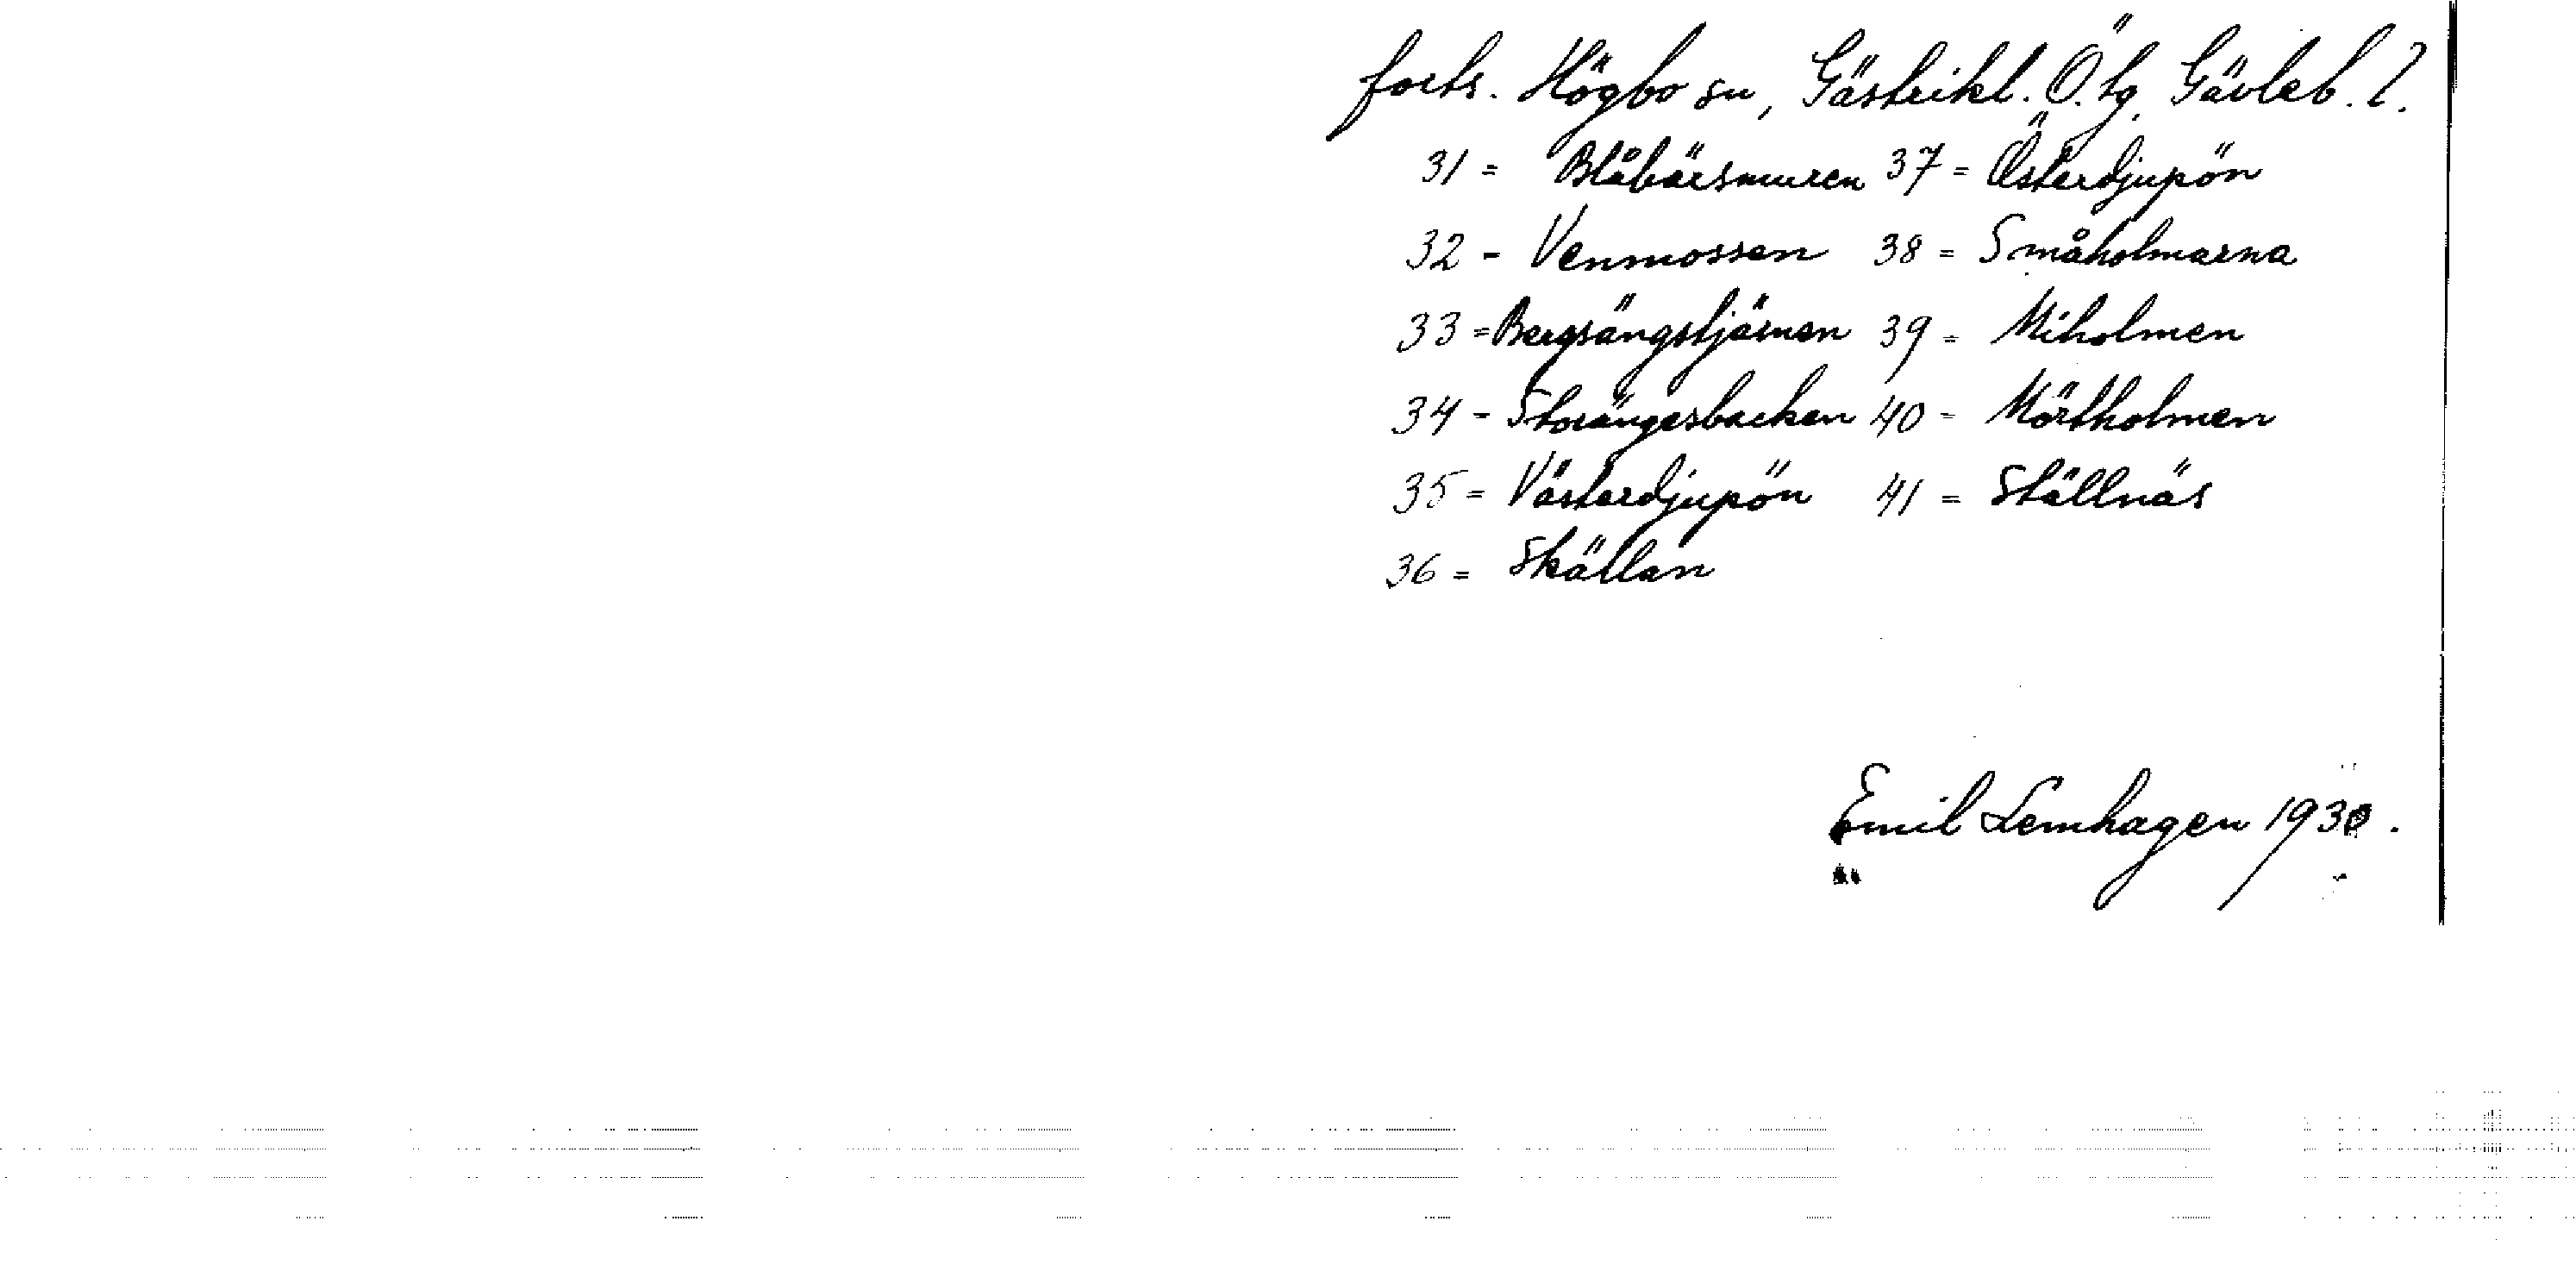 forts. Högbo sn, Gästrikl. Ö. tg. Gävleb. l.
31 = Blåbärsmuren 37 = Österdjupön
32 - Venmossen 38 = Småholmarna
33 = Bergsängstjärnen 39 = Miholmen
34 - Storängesbacken 40 - Mörtholmen
35 = Västerdjupön 41 = Ställnäs
36 = Skällan
Emil Lemhagen 1930.